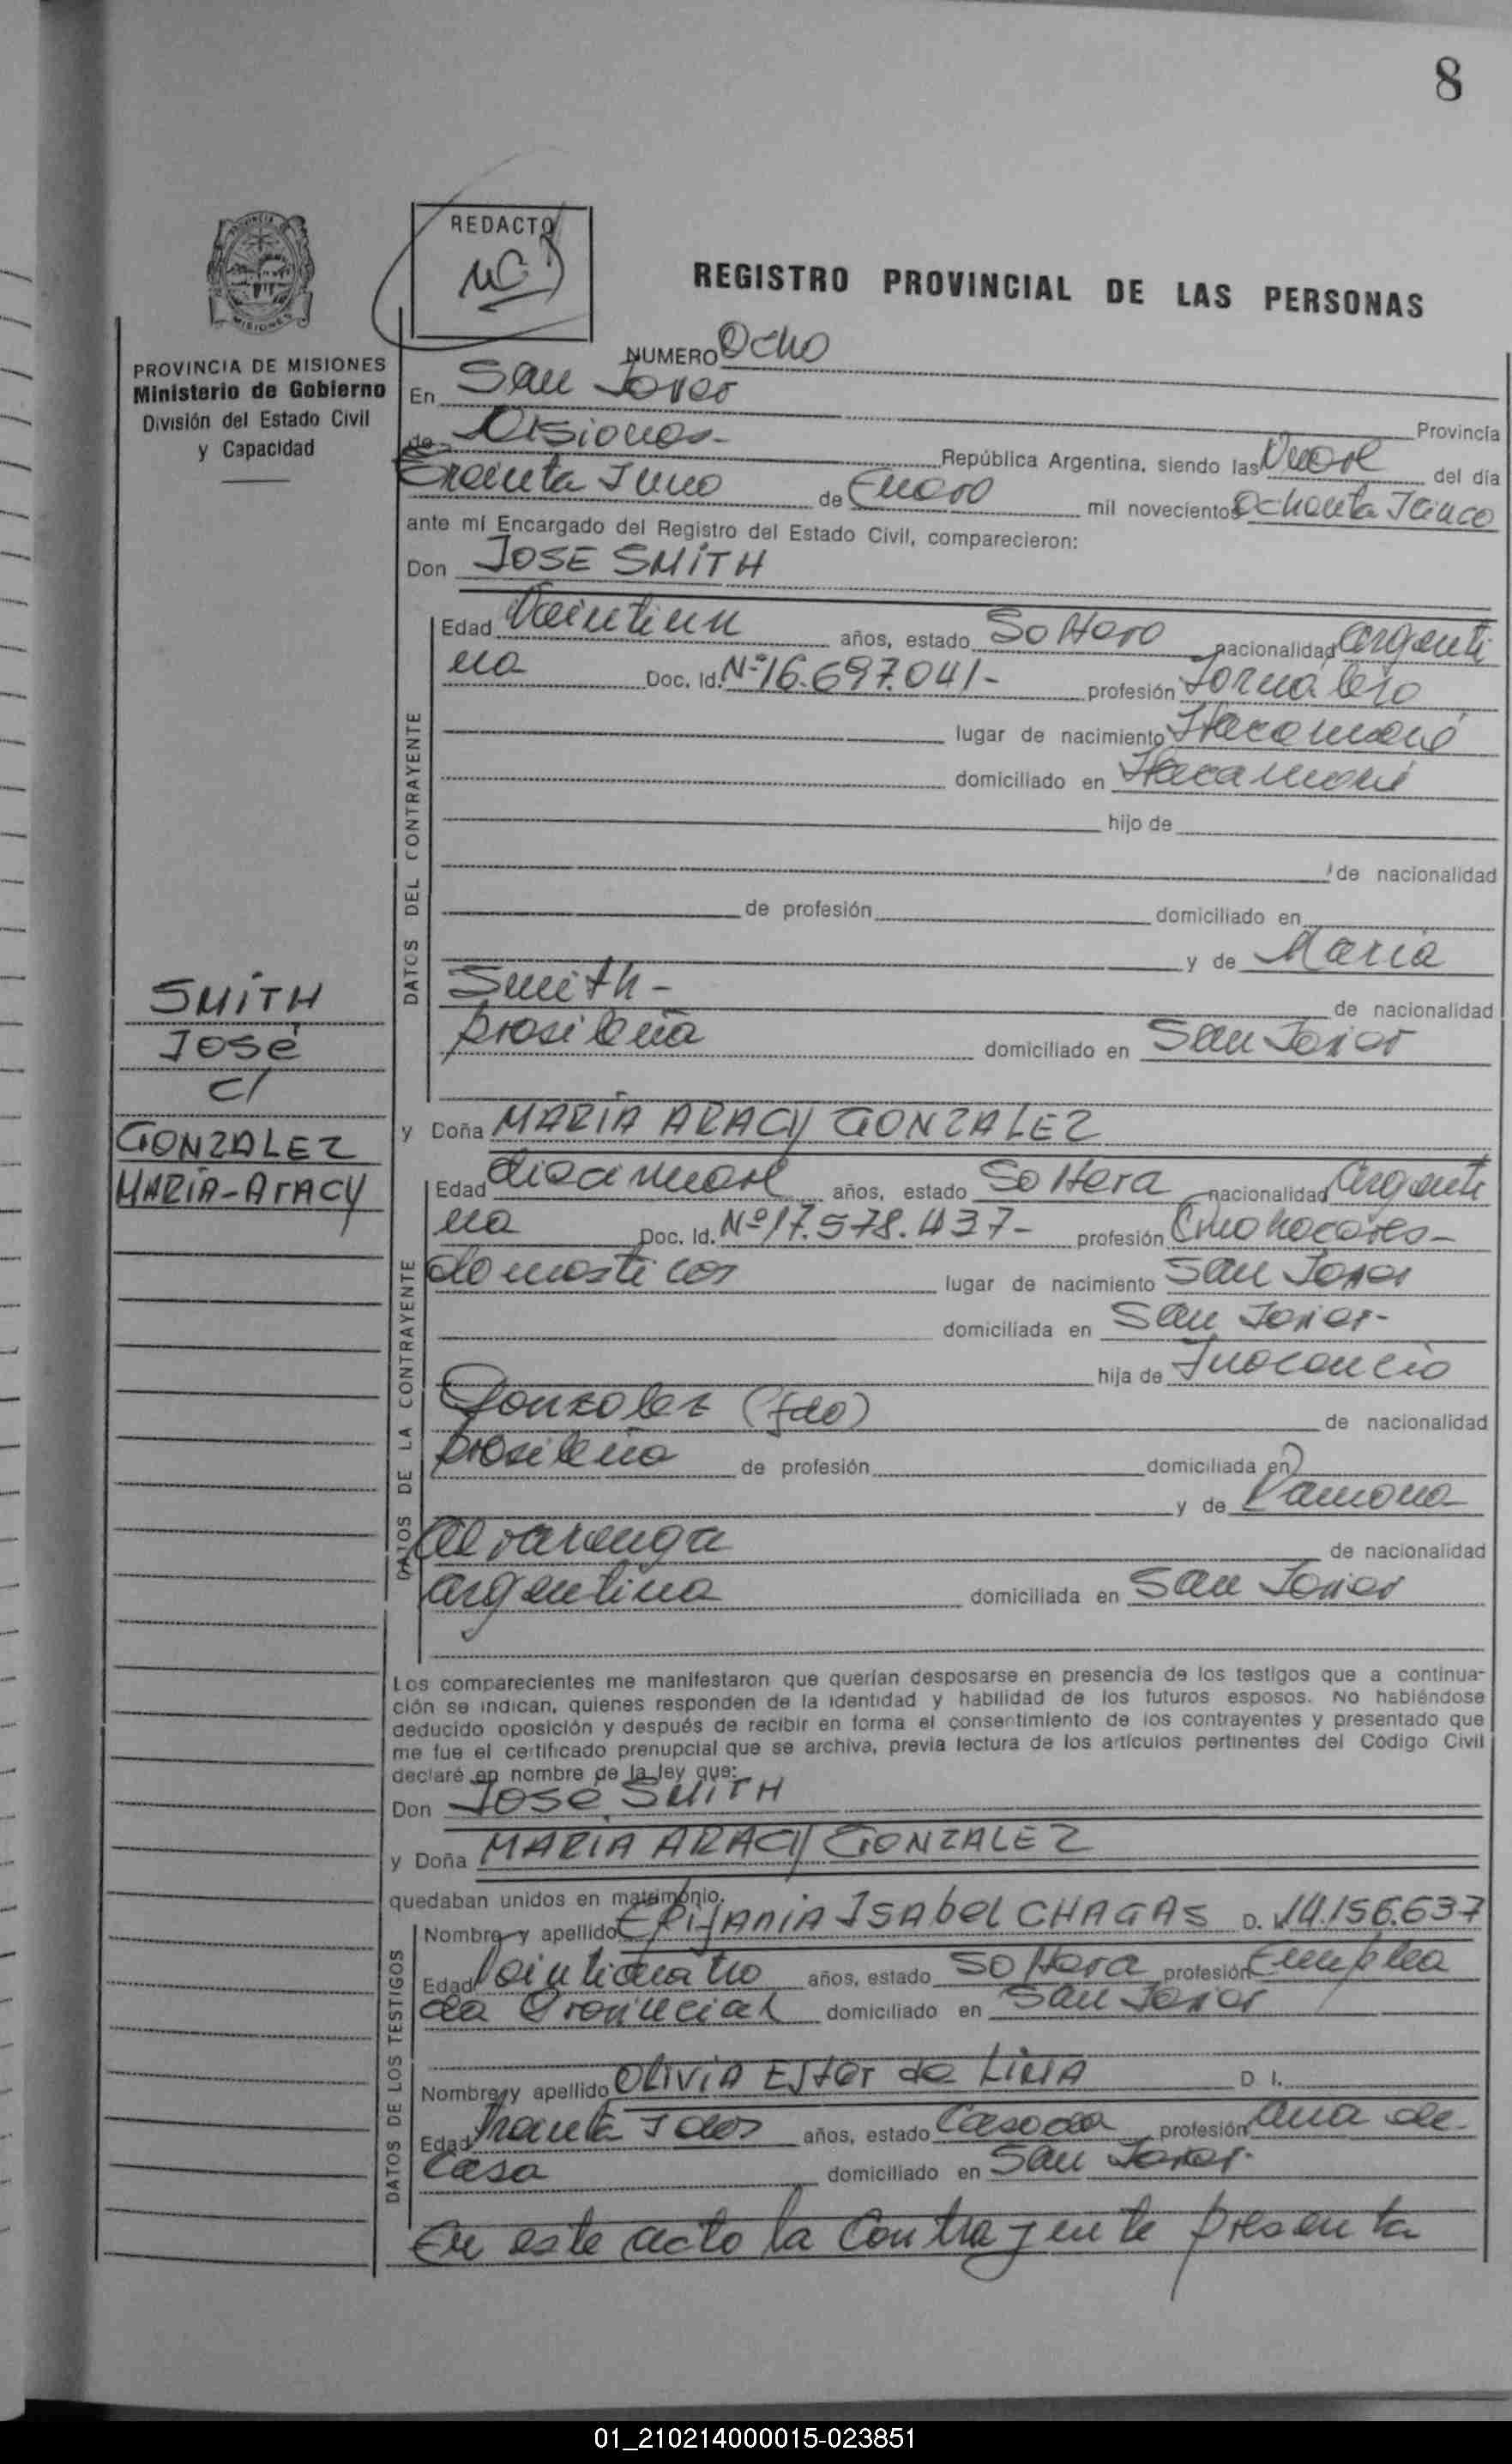 8
REDACTO
PROVINCIA DE MISIONES
Ministerio de Gobierno
División del Estado Civil
y Capacidad
REGISTRO PROVINCIAL DE LAS PERSONAS
NUMERO Ocho
En San Javier
Provincia
de Misiones- República Argentina, siendo las Nueve del día
Treinta y uno de Enero mil novecientos Ochenta y cinco
ante mí Encargado del Registro del Estado Civil, comparecieron:
Don JOSE SMITH
DATOS DEL CONTRAYENTE
Edad Veintiun años, estado Soltero nacionalidad argenti
na Doc. Id. Nº 16.697.041- profesión Jornalero
lugar de nacimiento Itacaruaré
domiciliado en Itacaruaré
hijo de
de nacionalidad
de profesión domiciliado en
y de María
Smith- de nacionalidad
brasileña domiciliado en San Javier
SMITH
José
c/
GONZALEZ
MARÍA-ArACY
y Doña MARÍA ARACY GONZALEZ
DATOS DE LA CONTRAYENTE
Edad diecinueve años, estado Soltera nacionalidad argenti
na Doc. Id. Nº 17.578.437- profesión Quehaceres-
domesticos lugar de nacimiento San Javier
domiciliada en San Javier-
hija de Inocencio
Gonzalez (fdo) de nacionalidad
brasileña de profesión domiciliada en
y de Ramona
Alvarenga de nacionalidad
argentina domiciliada en San Javier
Los comparecientes me manifestaron que querían desposarse en presencia de los testigos que a continua-
ción se indican, quienes responden de la identidad y habilidad de los futuros esposos. No habiéndose
deducido oposición y después de recibir en forma el consentimiento de los contrayentes y presentado que
me fue el certificado prenupcial que se archiva, previa lectura de los artículos pertinentes del Código Civil
declaré en nombre de la ley que:
Don José SMITH
y Doña MARÍA ARACY GONZALEZ
quedaban unidos en matrimonio.
DATOS DE LOS TESTIGOS
Nombre y apellido EPifANiA ISAbeL CHAGAS D. I. 14.156.637
Edad Veinticuatro años, estado Soltera profesión Emplea
da Provincial domiciliado en San Javier
Nombre y apellido OLiViA EStER de LiMA D I.
Edad Treinta y dos años, estado Casada profesión Ama de
Casa domiciliado en San Javier-
En este acto la Contrayente presenta
01_210214000015-023851